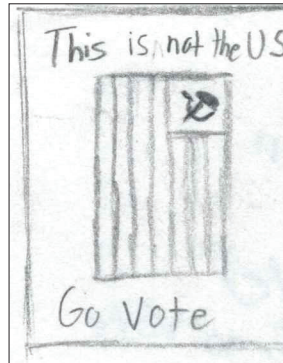 This is not the US
Go Vote